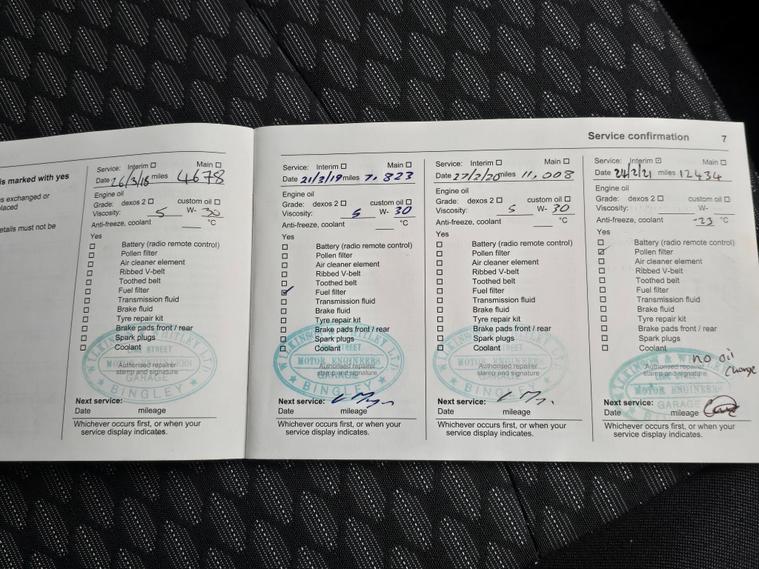 Service confirmation 7
is marked with yes
s exchanged or
placed
etails must not be
Service: Interim ☐ Main ☐
Date 26/3/18 miles 4678
Engine oil
Grade: dexos 2 ☐ custom oil ☐
Viscosity: 5 W- 30
Anti-freeze, coolant °C
Yes
☐ Battery (radio remote control)
☐ Pollen filter
☐ Air cleaner element
☐ Ribbed V-belt
☐ Toothed belt
☐ Fuel filter
☐ Transmission fluid
☐ Brake fluid
☐ Tyre repair kit
☐ Brake pads front / rear
☐ Spark plugs
☐ Coolant
STREET
MOTOR ENGINEERS
Authorised repairer
stamp and signature
GARAGE
BINGLEY
Next service:
Date mileage
Whichever occurs first, or when your
service display indicates.
Service: Interim ☐ Main ☐
Date 21/2/19 miles 7,823
Engine oil
Grade: dexos 2 ☐ custom oil ☐
Viscosity: 5 W- 30
Anti-freeze, coolant °C
Yes
☐ Battery (radio remote control)
☐ Pollen filter
☐ Air cleaner element
☐ Ribbed V-belt
☐ Toothed belt
☑ Fuel filter
☐ Transmission fluid
☐ Brake fluid
☐ Tyre repair kit
☐ Brake pads front / rear
☐ Spark plugs
☐ Coolant
MOTOR ENGINEERS
Authorised repairer
stamp and signature
BINGLEY
Next service:
Date mileage
Whichever occurs first, or when your
service display indicates.
Service: Interim ☐ Main ☐
Date 27/2/20 miles 11,008
Engine oil
Grade: dexos 2 ☐ custom oil ☐
Viscosity: 5 W- 30
Anti-freeze, coolant °C
Yes
☐ Battery (radio remote control)
☐ Pollen filter
☐ Air cleaner element
☐ Ribbed V-belt
☐ Toothed belt
☐ Fuel filter
☐ Transmission fluid
☐ Brake fluid
☐ Tyre repair kit
☐ Brake pads front / rear
☐ Spark plugs
☐ Coolant
MOTOR ENGINEERS
Authorised repairer
stamp and signature
BINGLEY
Next service:
Date mileage
Whichever occurs first, or when your
service display indicates.
Service: Interim ☑ Main ☐
Date 24/2/21 miles 12434
Engine oil
Grade: dexos 2 ☐ custom oil ☐
Viscosity: W-
Anti-freeze, coolant -23 °C
Yes
☐ Battery (radio remote control)
☑ Pollen filter
☐ Air cleaner element
☐ Ribbed V-belt
☐ Toothed belt
☐ Fuel filter
☐ Transmission fluid
☐ Brake fluid
☐ Tyre repair kit
☐ Brake pads front / rear
☐ Spark plugs
☐ Coolant
no oil
change
Authorised repairer
stamp and signature
MOTOR ENGINEERS
GARAGE
Next service:
Date mileage
Whichever occurs first, or when your
service display indicates.